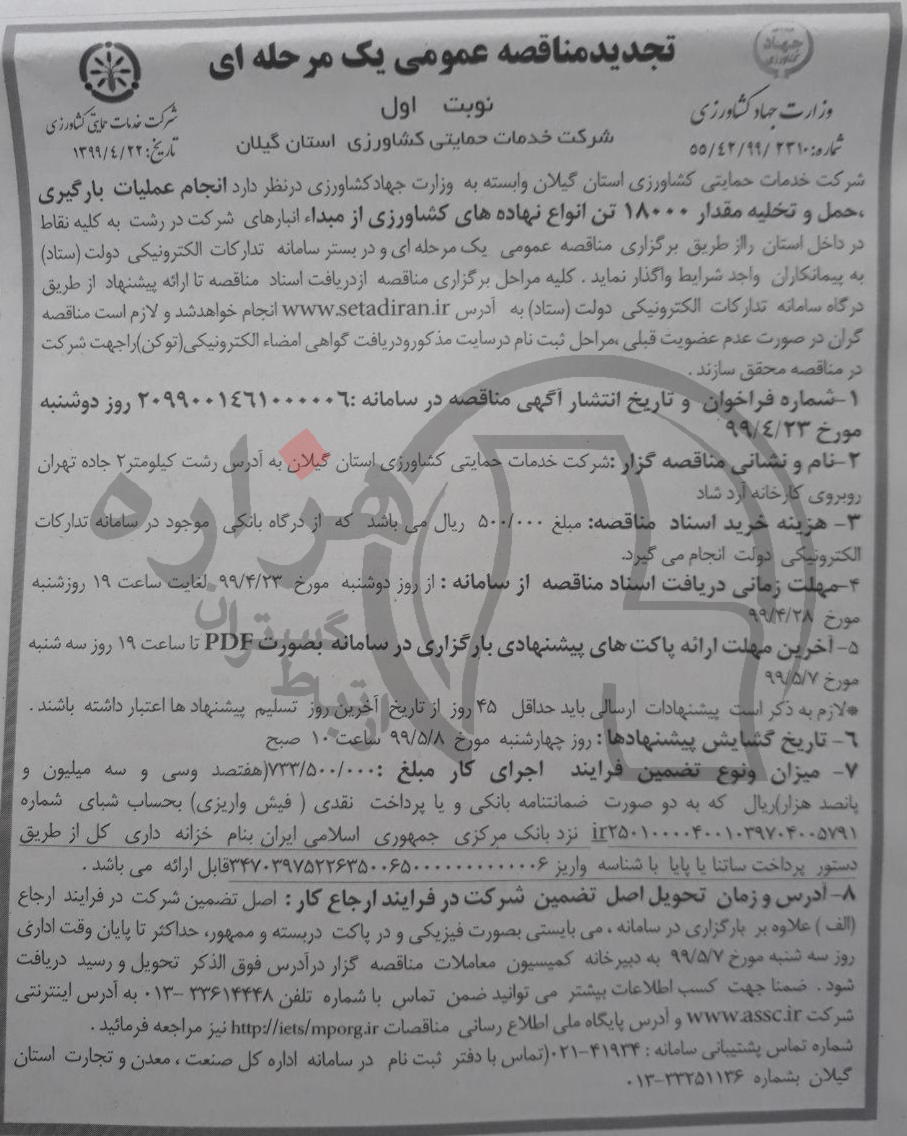 تجدیدمناقصه عمومی یک مرحله ای
جهاد
کشاورزی
نوبت اول
وزارت جهاد کشاورزی
شرکت خدمات حمایتی کشاورزی
شرکت خدمات حمایتی کشاورزی استان گیلان
شماره: ۵۵/۴۲/۹۹/۲۳۱۰
تاریخ: ۱۳۹۹/۴/۲۲
شرکت خدمات حمایتی کشاورزی استان گیلان وابسته به وزارت جهادکشاورزی درنظر دارد انجام عملیات بارگیری
،حمل و تخلیه مقدار ۱۸۰۰۰ تن انواع نهاده های کشاورزی از مبداء انبارهای شرکت در رشت به کلیه نقاط
در داخل استان رااز طریق برگزاری مناقصه عمومی یک مرحله ای و در بستر سامانه تدارکات الکترونیکی دولت (ستاد)
به پیمانکاران واجد شرایط واگذار نماید . کلیه مراحل برگزاری مناقصه ازدریافت اسناد مناقصه تا ارائه پیشنهاد از طریق
درگاه سامانه تدارکات الکترونیکی دولت (ستاد) به آدرس www.setadiran.ir انجام خواهدشد و لازم است مناقصه
گران در صورت عدم عضویت قبلی ،مراحل ثبت نام درسایت مذکورودریافت گواهی امضاء الکترونیکی(توکن)راجهت شرکت
در مناقصه محقق سازند .
۱-شماره فراخوان و تاریخ انتشار آگهی مناقصه در سامانه :۲۰۹۹۰۰۱۴۶۱۰۰۰۰۰۶ روز دوشنبه
مورخ ۹۹/۴/۲۳
۲-نام و نشانی مناقصه گزار :شرکت خدمات حمایتی کشاورزی استان گیلان به آدرس رشت کیلومتر۲ جاده تهران
روبروی کارخانه آرد شاد
۳- هزینه خرید اسناد مناقصه: مبلغ ۵۰۰/۰۰۰ ریال می باشد که از درگاه بانکی موجود در سامانه تدارکات
الکترونیکی دولت انجام می گیرد.
۴-مهلت زمانی دریافت اسناد مناقصه از سامانه : از روز دوشنبه مورخ ۹۹/۴/۲۳ لغایت ساعت ۱۹ روزشنبه
مورخ ۹۹/۴/۲۸
۵- آخرین مهلت ارائه پاکت های پیشنهادی بارگزاری در سامانه بصورت PDF تا ساعت ۱۹ روز سه شنبه
مورخ ۹۹/۵/۷
*لازم به ذکر است پیشنهادات ارسالی باید حداقل ۴۵ روز از تاریخ آخرین روز تسلیم پیشنهاد ها اعتبار داشته باشند .
۶- تاریخ گشایش پیشنهادها : روز چهارشنبه مورخ ۹۹/۵/۸ ساعت ۱۰ صبح
۷- میزان ونوع تضمین فرایند اجرای کار مبلغ :۷۳۳/۵۰۰/۰۰۰(هفتصد وسی و سه میلیون و
پانصد هزار)ریال که به دو صورت ضمانتنامه بانکی و یا پرداخت نقدی ( فیش واریزی) بحساب شبای شماره
ir۲۵۰۱۰۰۰۰۴۰۰۱۰۳۹۷۰۴۰۰۵۷۹۱ نزد بانک مرکزی جمهوری اسلامی ایران بنام خزانه داری کل از طریق
دستور پرداخت ساتنا یا پایا با شناسه واریز ۳۴۷۰۳۹۷۵۲۲۶۳۵۰۰۶۵۰۰۰۰۰۰۰۰۰۰۰۰۶قابل ارائه می باشد .
۸- آدرس و زمان تحویل اصل تضمین شرکت در فرایند ارجاع کار : اصل تضمین شرکت در فرایند ارجاع
(الف ) علاوه بر بارگزاری در سامانه ، می بایستی بصورت فیزیکی و در پاکت دربسته و ممهور، حداکثر تا پایان وقت اداری
روز سه شنبه مورخ ۹۹/۵/۷ به دبیرخانه کمیسیون معاملات مناقصه گزار درآدرس فوق الذکر تحویل و رسید دریافت
شود . ضمنا جهت کسب اطلاعات بیشتر می توانید ضمن تماس با شماره تلفن ۳۳۶۱۴۴۴۸ -۰۱۳ به آدرس اینترنتی
شرکت www.assc.ir و آدرس پایگاه ملی اطلاع رسانی مناقصات http://iets/mporg.ir نیز مراجعه فرمائید .
شماره تماس پشتیبانی سامانه : ۴۱۹۳۴-۰۲۱(تماس با دفتر ثبت نام در سامانه اداره کل صنعت ، معدن و تجارت استان
گیلان بشماره ۳۳۲۵۱۱۳۶-۰۱۳
هزاره
گستران
ارتباط